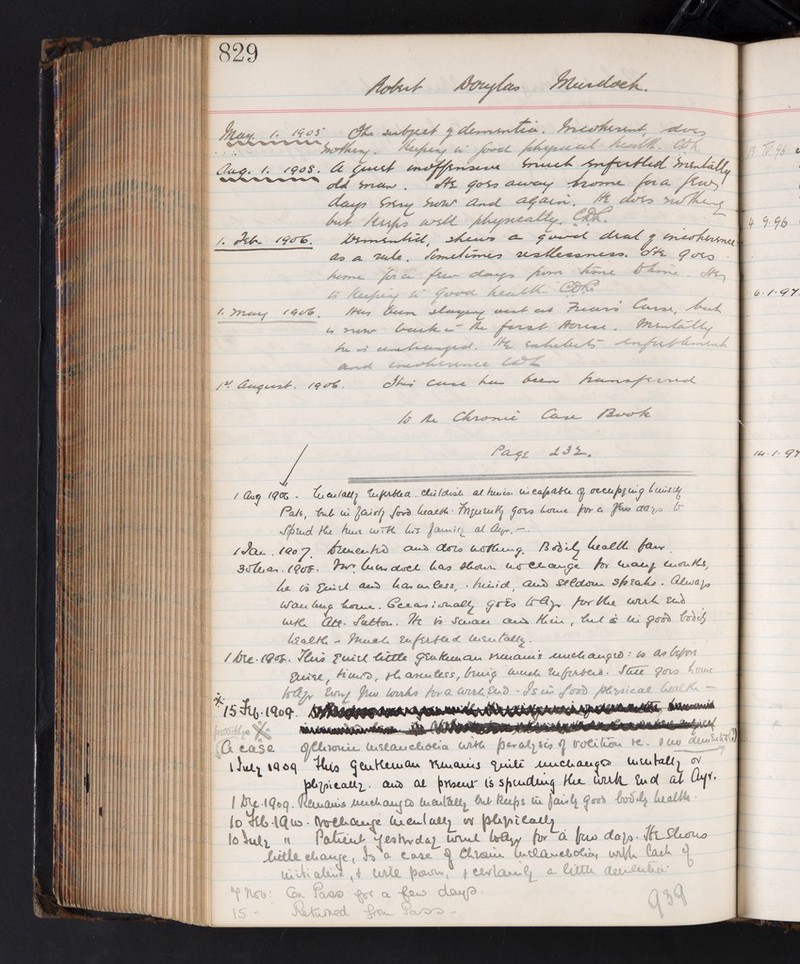 829
Robert Douglas Murdoch.
May. 1. 1905 The subject of dementia. Incoherent, does
nothing. Keeping in good physical health. CDK
Aug. 1. 1905. A quiet inoffensive much enfeebled mentally
old man. He goes away home for a few
days every now and again. He does nothing
but keeps well physically.
1. Feb. 1906. Demented, shews a good deal of incoherence
as a rule. Sometimes restlessness. He goes
home for a few days from time to time. He
is keeping in good health
1. May 1906. Has been staying out at House, but
is now back in the first House. Mentally
he is unchanged. He exhibits enfeeblement
and incoherence
1st August. 1906. This case has been transferred
to the Chronic Case Book
Page 232.
1 Aug 1906 - Mentally Enfeebled childish at times incapable of occupying himself
Pale, but in fairly good health. Frequently goes home for a few days to
Spend the time with his family at Ayr. -
1 Jan. 1907. Demented and does nothing. Bodily health fair.
30 Mar. 1908. Mr. Murdoch has shown no change for many months,
he is quiet and harmless, timid, and seldom speaks. Always
wanting home. Occasionally goes to Ayr for the week end
with Att. Sutton. He is and thin, but is in good bodily
health - Much enfeebled mentally.
1 Dec. 1908. This quiet little gentleman remains unchanged: is as before
Quiet, timid, harmless, being much enfeebled. Still goes home
to Ayr every few weeks for a week end - Is in good physical health -
15 Feb. 1909.
possibly
(A case of Chronic melancholia with paralysis of volition &c. & no dementia(?))
1 July 1909 This gentleman remains quite unchanged mentally or
physically. and at present is spending the week end at Ayr.
1 Dec. 1909. Remains unchanged mentally but keeps in fairly good bodily health.
10 Feb. 1910. No change mentally or physically
10 July " Patient yesterday went to Ayr for a few days. He shows
little change, Is a case of Chronic melancholia, with lack of
initiative, & will power, & certainly a little dementia.
7 Nov: On Pass for a few days
15 - Returned from Pass -
939
4 9.96
6.1.97
14.1.97